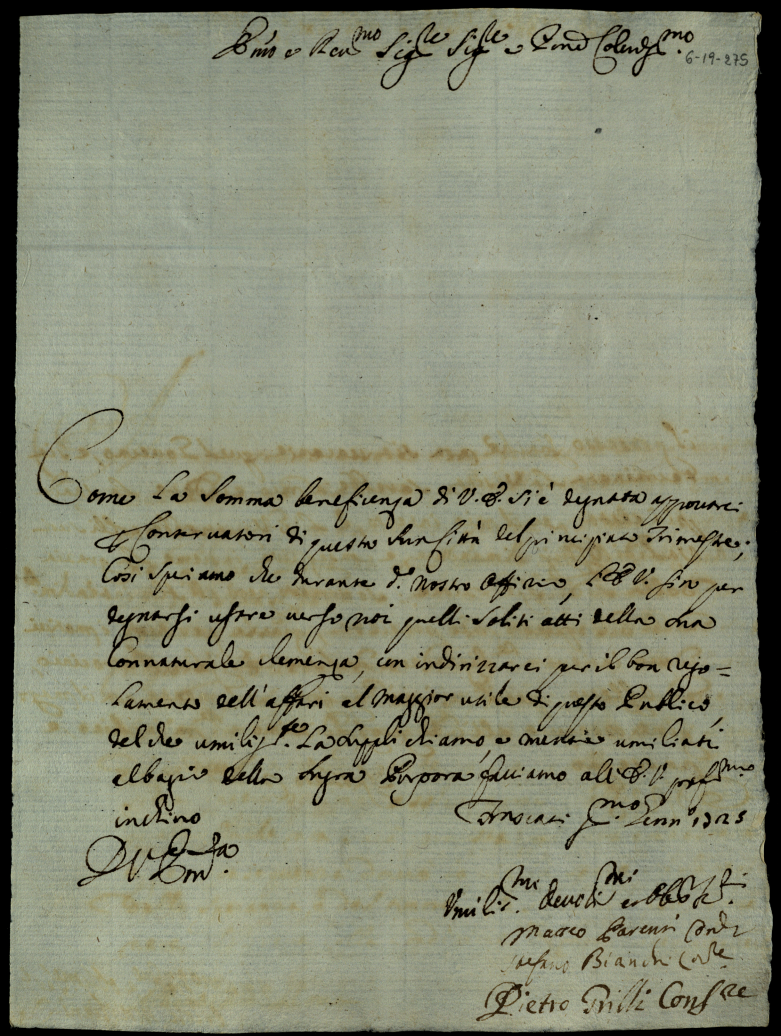 Em̃o e Rev.mo Sig.re Sig.re e Pron̄ Colend.mo
6-19-275
Come La Somma beneficenza di V. E. si è degnata approvarci
Conservatori di questa Sua Città del principiato Trimestre;
Così speriamo che durante d.º nostro Offizio, L'E. V. sia per
degnarsi usare verso noi quelli soliti atti della sua
Connaturale clemenza, con indirizzarci per il bon rego=
lamento dell'affari al maggior utile di questo Publico,
del che umilis.te La supplichiamo, e mentre umiliati
al bagio della Sagra Porpora facciamo all'E. V. prof.mo
inchino
P.mo Genn.º 1725
D V Em̃.za
Umilis.mi Devot.mi et Obblig.
Marco Cons.re
Stefano Bianchi Con.re
Pietro Trilli Cons.re